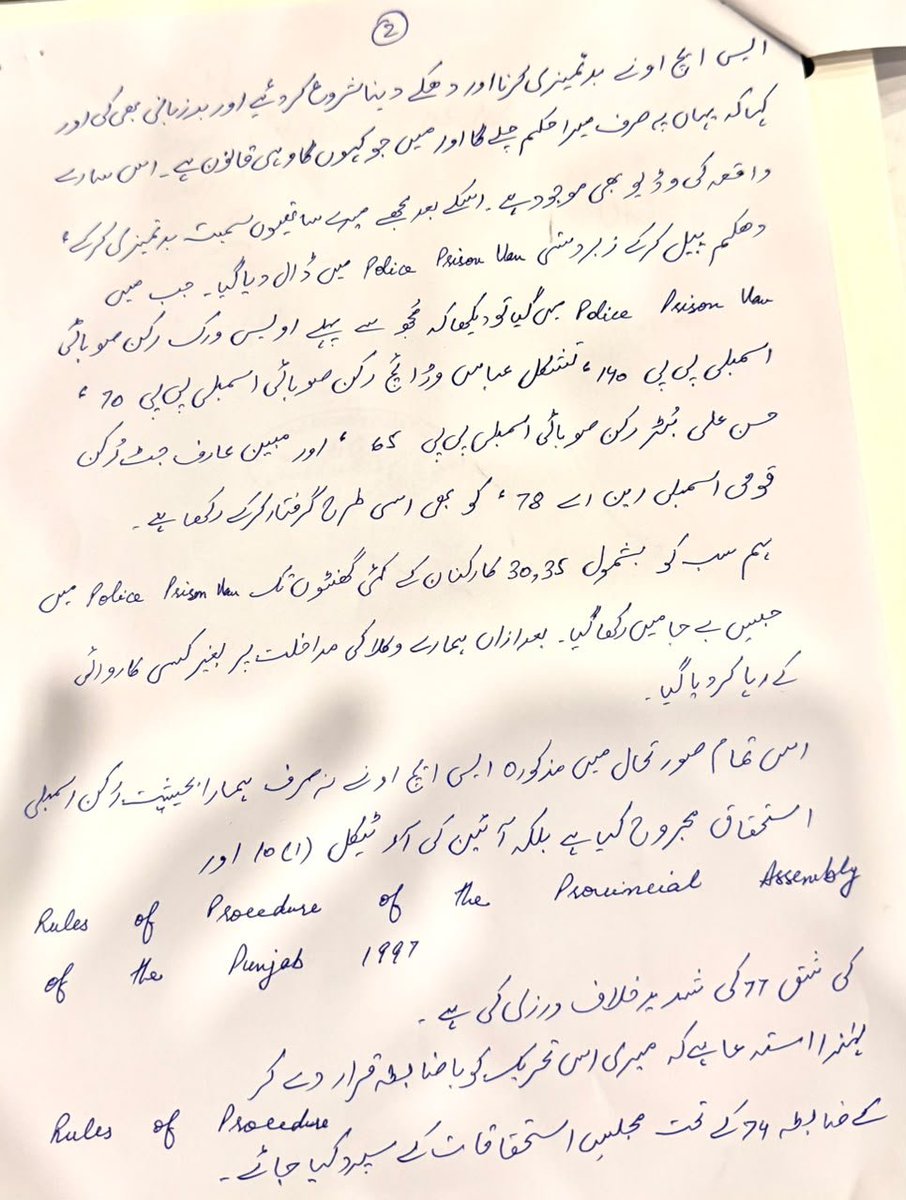 2
ایس ایچ او نے بدتمیزی کرنا اور دھکے دینا شروع کر دئیے اور بدزبانی بھی کی اور
کہا کہ یہاں پہ صرف میرا حکم چلے گا اور میں جو کہوں گا وہی قانون ہے۔ اس سارے
واقعہ کی وڈیو بھی موجود ہے۔ اسکے بعد مجھے میرے ساتھیوں سمیت بدتمیزی کرکے،
دھکم پیل کرکے زبردستی Police Prison Van میں ڈال دیا گیا۔ جب میں
Police Prison Van میں گیا تو دیکھا کہ مجھ سے پہلے اویس ورک رکن صوبائی
اسمبلی پی پی 140، تشکل عباس وڑائچ رکن صوبائی اسمبلی پی پی 70،
حسن علی بُٹر رکن صوبائی اسمبلی پی پی 65، اور مبین عارف جٹ رُکن
قومی اسمبلی این اے 78، کو بھی اسی طرح گرفتار کرکے رکھا ہے۔
ہم سب کو بشمول 30,35 کارکنان کے کئی گھنٹوں تک Police Prison Van میں
حبسِ بے جا میں رکھا گیا۔ بعد ازاں ہمارے وکلا کی مداخلت پر بغیر کسی کاروائی
کے رہا کر دیا گیا۔
اس تمام صورتحال میں مذکورہ ایس ایچ او نے نہ صرف ہمارا بحیثیت رُکن اسمبلی
استحقاق مجروح کیا ہے بلکہ آئین کی آرٹیکل 10(1) اور
Rules of Procedure of the Provincial Assembly
of the Punjab 1997
کی شق 77 کی شدید خلاف ورزی کی ہے۔
لہٰذا استدعا ہے کہ میری اس تحریک کو باضابطہ قرار دے کر
Rules of Procedure کے ضابطہ 74 کے تحت مجلسِ استحقاقات کے سپرد کیا جائے۔